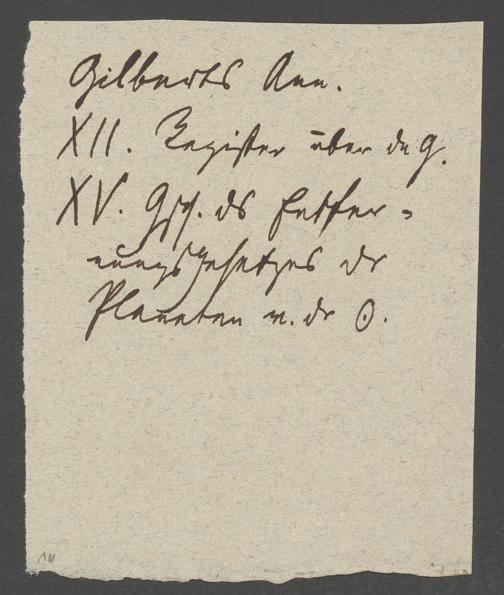 Gilberts Ann.
XII. Register über da G.
XV. Gsch. ds Entfer-
nungsgesetzes dr
Planeten v. dr ☉.